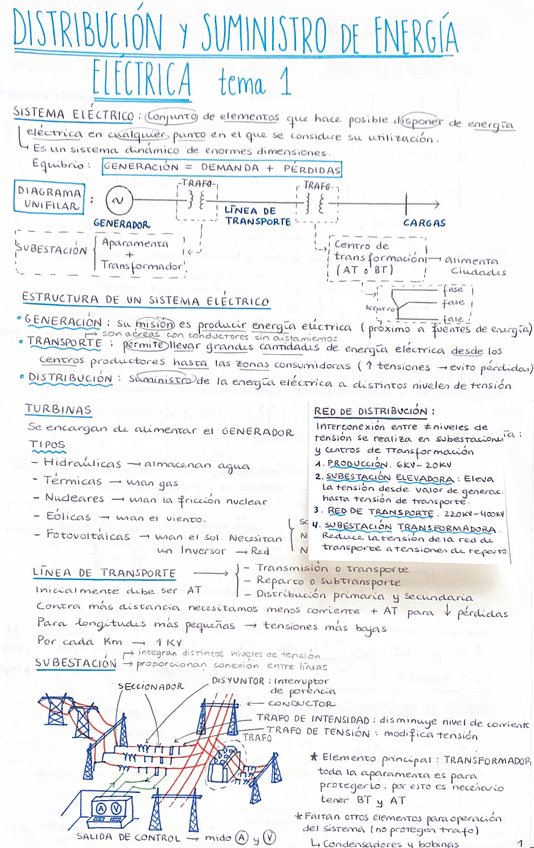 DISTRIBUCIÓN y SUMINISTRO DE ENERGÍA
ELÉCTRICA tema 1
SISTEMA ELÉCTRICO: Conjunto de elementos que hace posible disponer de energía
eléctrica en cualquier punto en el que se considere su utilización.
Es un sistema dinámico de enormes dimensiones.
Equibrio: GENERACIÓN = DEMANDA + PÉRDIDAS
DIAGRAMA UNIFILAR:
TRAFO
TRAFO
GENERADOR
LÍNEA DE TRANSPORTE
CARGAS
SUBESTACIÓN
Aparamenta
+
Transformador
Centro de
transformación → alimenta
(AT a BT) Ciudades
fase
fase
Neutro
fase
ESTRUCTURA DE UN SISTEMA ELÉCTRICO
• GENERACIÓN: su misión es producir energía eléctrica (próximo a fuentes de energía)
→ son aéreas con conductores sin aislamientos
• TRANSPORTE: permite llevar grandes cantidades de energía eléctrica desde los
centros productores hasta las zonas consumidoras (↑ tensiones → evito pérdidas)
• DISTRIBUCIÓN: suministro de la energía eléctrica a distintos niveles de tensión
TURBINAS
Se encargan de alimentar el GENERADOR
TIPOS
- Hidraúlicas → almacenan agua
- Térmicas → usan gas
- Nucleares → usan la fricción nuclear
- Eólicas → usan el viento.
- Fotovoltáicas → usan el sol. Necesitan
un Inversor → Red
RED DE DISTRIBUCIÓN:
Interconexión entre ≠ niveles de
tensión se realiza en subestaciones
y Centros de Transformación
1. PRODUCCIÓN. 6KV - 20KV
2. SUBESTACIÓN ELEVADORA: Eleva
la tensión desde valor de generac.
hasta tensión de transporte.
3. RED DE TRANSPORTE. 220KV - 400KV
4. SUBESTACIÓN TRANSFORMADORA.
Reduce la tensión de la red de
transporte a tensiones de reparto
LÍNEA DE TRANSPORTE →
- Transmisión o transporte
- Reparto o Subtransporte
- Distribución primaria y secundaria
Inicialmente debe ser AT
Contra más distancia necesitamos menos corriente + AT para ↓ pérdidas
Para longitudes más pequeñas → tensiones más bajas
Por cada Km → 1 KV
SUBESTACIÓN → integran distintos niveles de tensión
→ proporcionan conexión entre líneas
SECCIONADOR
DISYUNTOR: Interruptor
de potencia
CONDUCTOR
TRAFO DE INTENSIDAD: disminuye nivel de corriente
TRAFO DE TENSIÓN: modifica tensión
TRAFO
A V
SALIDA DE CONTROL → mido A y V
* Elemento principal: TRANSFORMADOR
toda la aparamenta es para
protegerlo. por esto es necesario
tener BT y AT
* Faltan otros elementos para operación
del sistema (no protegen trafo)
↳ Condensadores y bobinas
1